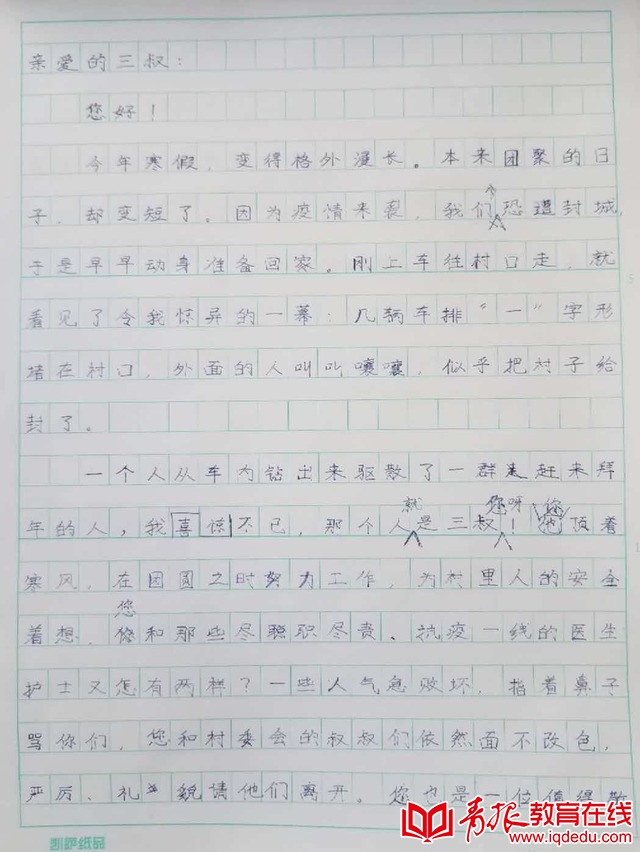 亲爱的三叔：
您好！
今年寒假，变得格外漫长。本来团聚的日
子，却变短了。因为疫情来袭，我们恐遭封城，
于是早早动身准备回家。刚上车往村口走，就
看见了令我惊异的一幕：几辆车排“一”字形
堵在村口，外面的人叫叫嚷嚷，似乎把村子给
封了。
一个人从车内钻出来驱散了一群赶来拜
年的人，我喜惊不已，那个人就是三叔您呀！您顶着
寒风，在团圆之时努力工作，为村里人的安全
着想，您和那些尽职尽责、抗疫一线的医生
护士又怎有两样？一些人气急败坏，指着鼻子
骂你们，您和村委会的叔叔们依然面不改色，
严厉、礼貌请他们离开。您也是一位值得敬
青报教育在线
www.iqdedu.com